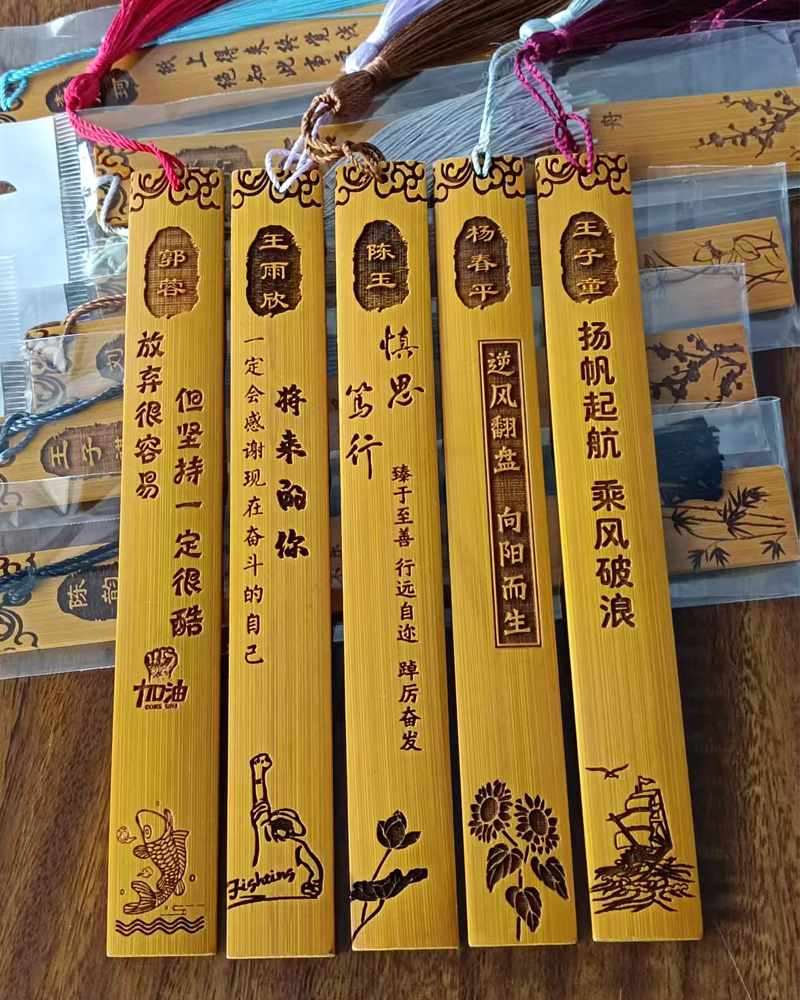 纸上得来终觉浅
绝知此事
舟
王子
陈韵
郭蓉
放弃很容易
但坚持一定很酷
加油
COME ON!
王雨欣
将来的你
一定会感谢现在奋斗的自己
Fighting
陈玉
慎思
笃行
臻于至善 行远自迩 踔厉奋发
杨春平
逆风翻盘 向阳而生
王子童
扬帆起航 乘风破浪